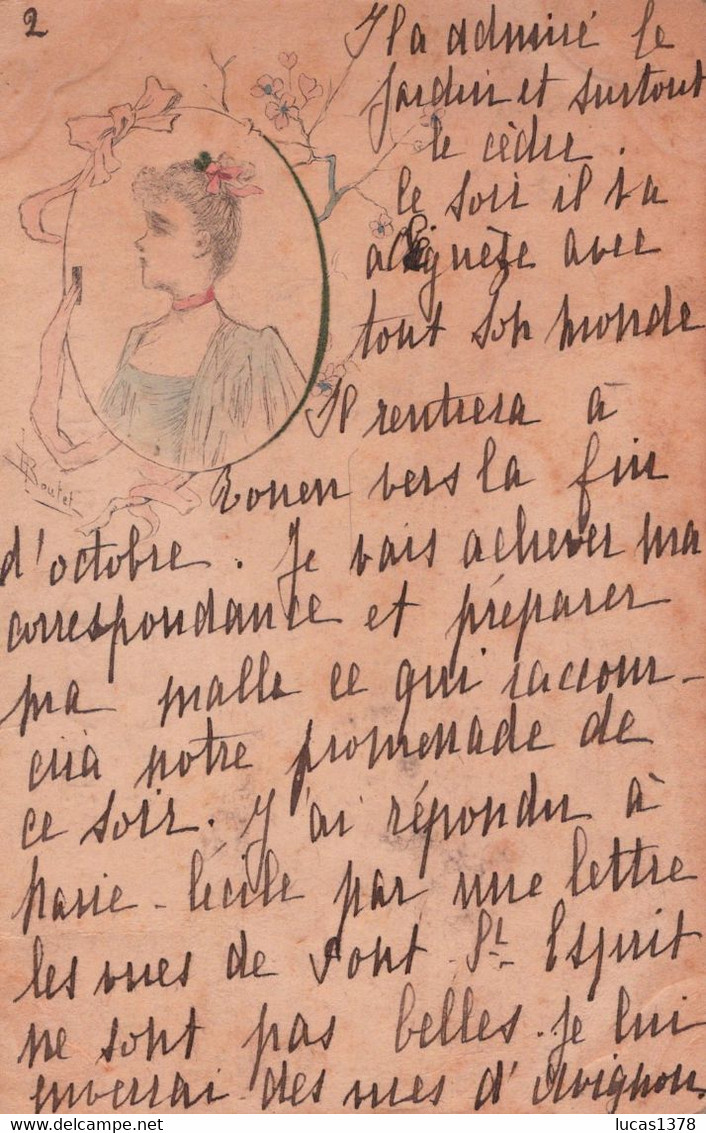 2
Il a admiré le
jardin et surtout
le cèdre.
le soir il va
avec
tout son monde
Il rentrera à
Rouen vers la fin
d'octobre. Je vais achever ma
correspondance et préparer
ma malle ce qui raccour-
cira notre promenade de
ce soir. J'ai répondu à
Marie-Cécile par une lettre
les vues de Pont St Esprit
ne sont pas belles. Je lui
enverrai des vues d'Avignon.
Boutet
lucas1378